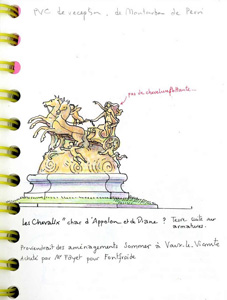 PVC de reception, de Montauban de Perri
pas de chevelure flottante...
Les Chevaux "char d'Appolon et de Diane ? Terre cuite sur
armatures.
Proviendrait des aménagements Sommier à Vaux-le-Vicomte
acheté par Mr Fayet pour Fontfroide